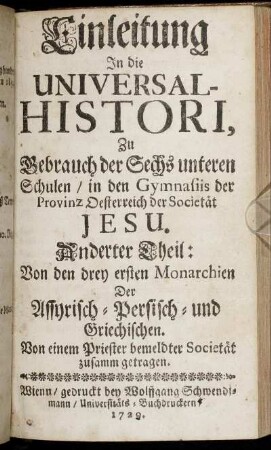 Einleitung
In die
UNIVERSAL-
HISTORI,
Zu
Gebrauch der Sechs unteren
Schulen / in den Gymnasiis der
Provinz Oesterreich der Societät
JESU.
Anderter Theil:
Von den drey ersten Monarchien
Der
Assyrisch-Persisch-und
Griechischen.
Von einem Priester bemeldter Societät
zusamm getragen.
Wienn / gedruckt bey Wolffgang Schwendi-
mann / Universitäts-Buchdruckern
1729.